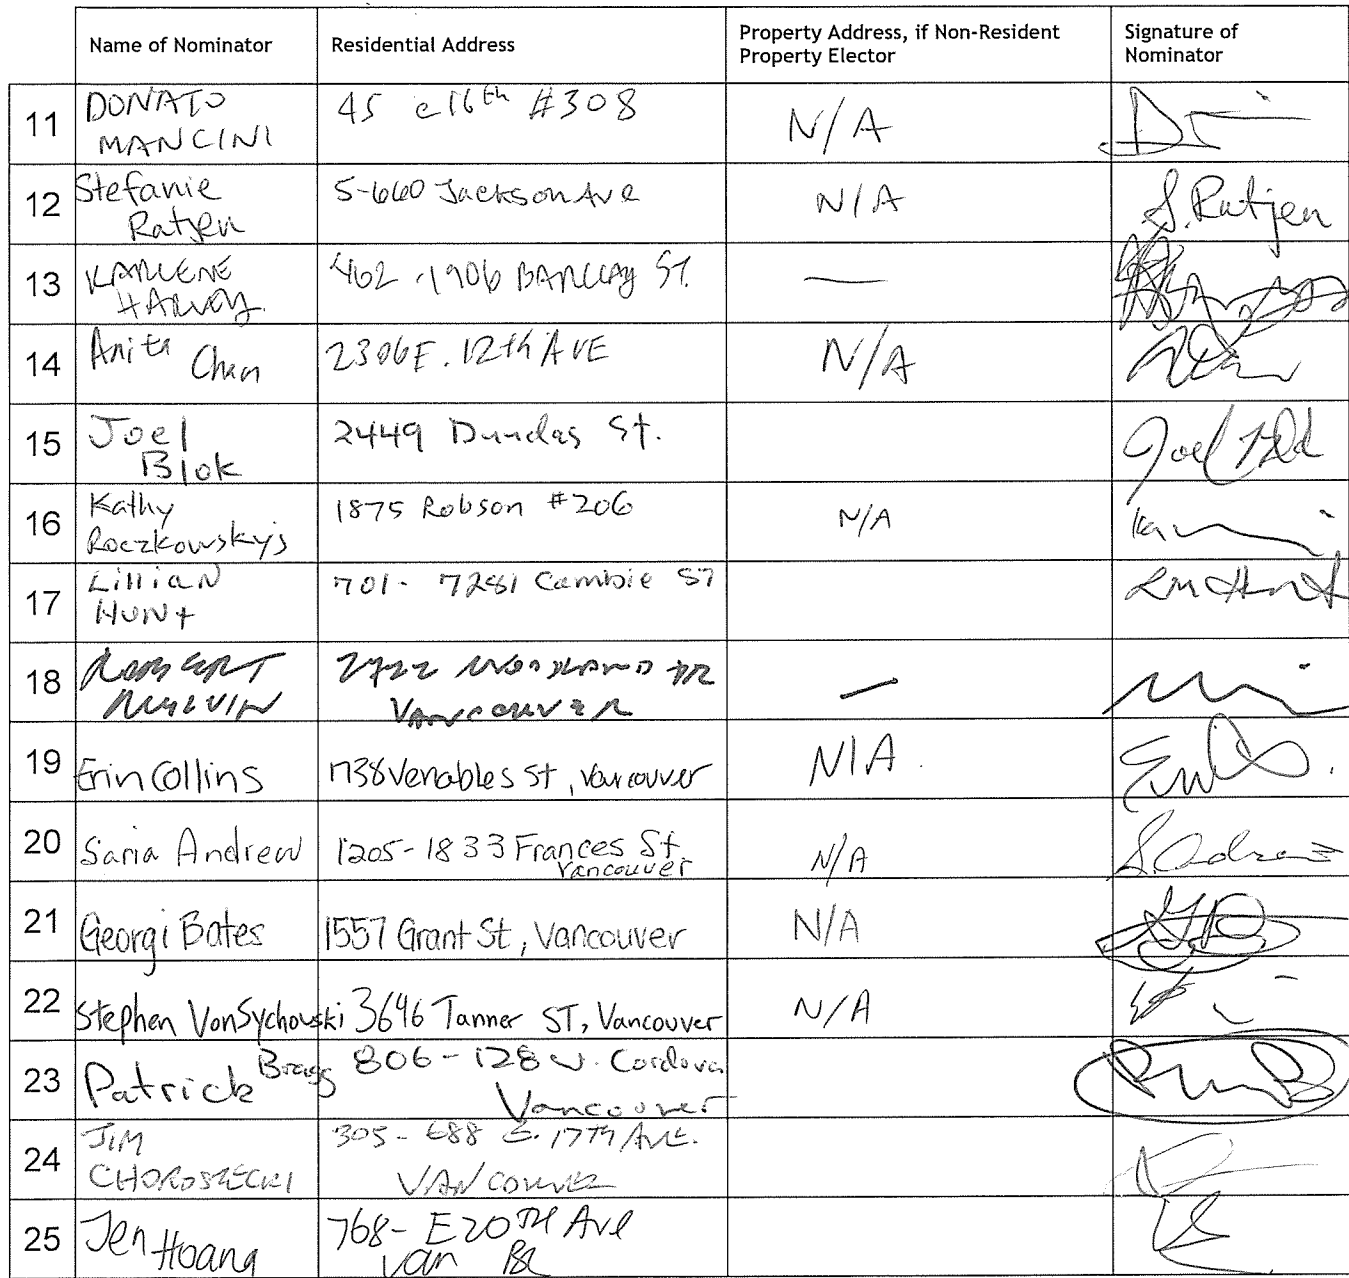 Name of Nominator
Residential Address
Property Address, if Non-Resident
Property Elector
Signature of
Nominator
11
DONATO
MANCINI
45 e 16th #308
N/A
12
Stefanie
Ratjen
5-660 Jackson Ave
N/A
S. Ratjen
13
KARLENE
HARVEY
462-1906 BARCLAY ST.
—
14
Anita Chan
2306 E. 12th AVE
N/A
15
Joel
Blok
2449 Dundas St.
Joel
16
Kathy
Roczkowskyj
1875 Robson #206
N/A
17
LilliaN
HUNt
701- 7281 Cambie ST
18
ROBERT
2722 WOODLAND DR
VANCOUVER
—
19
Erin Collins
1738 Venables St, Vancouver
N/A
20
Saria Andrew
1205-1833 Frances St
Vancouver
N/A
21
Georgi Bates
1557 Grant St, Vancouver
N/A
22
Stephen VonSychowski
3646 Tanner ST, Vancouver
N/A
23
Patrick Bragg
806-128 W. Cordova
Vancouver
24
JIM
CHOROSZECKI
305-688 E. 17TH AVE.
VANCOUVER
25
Jen Hoang
768- E 20TH Ave
Van BC